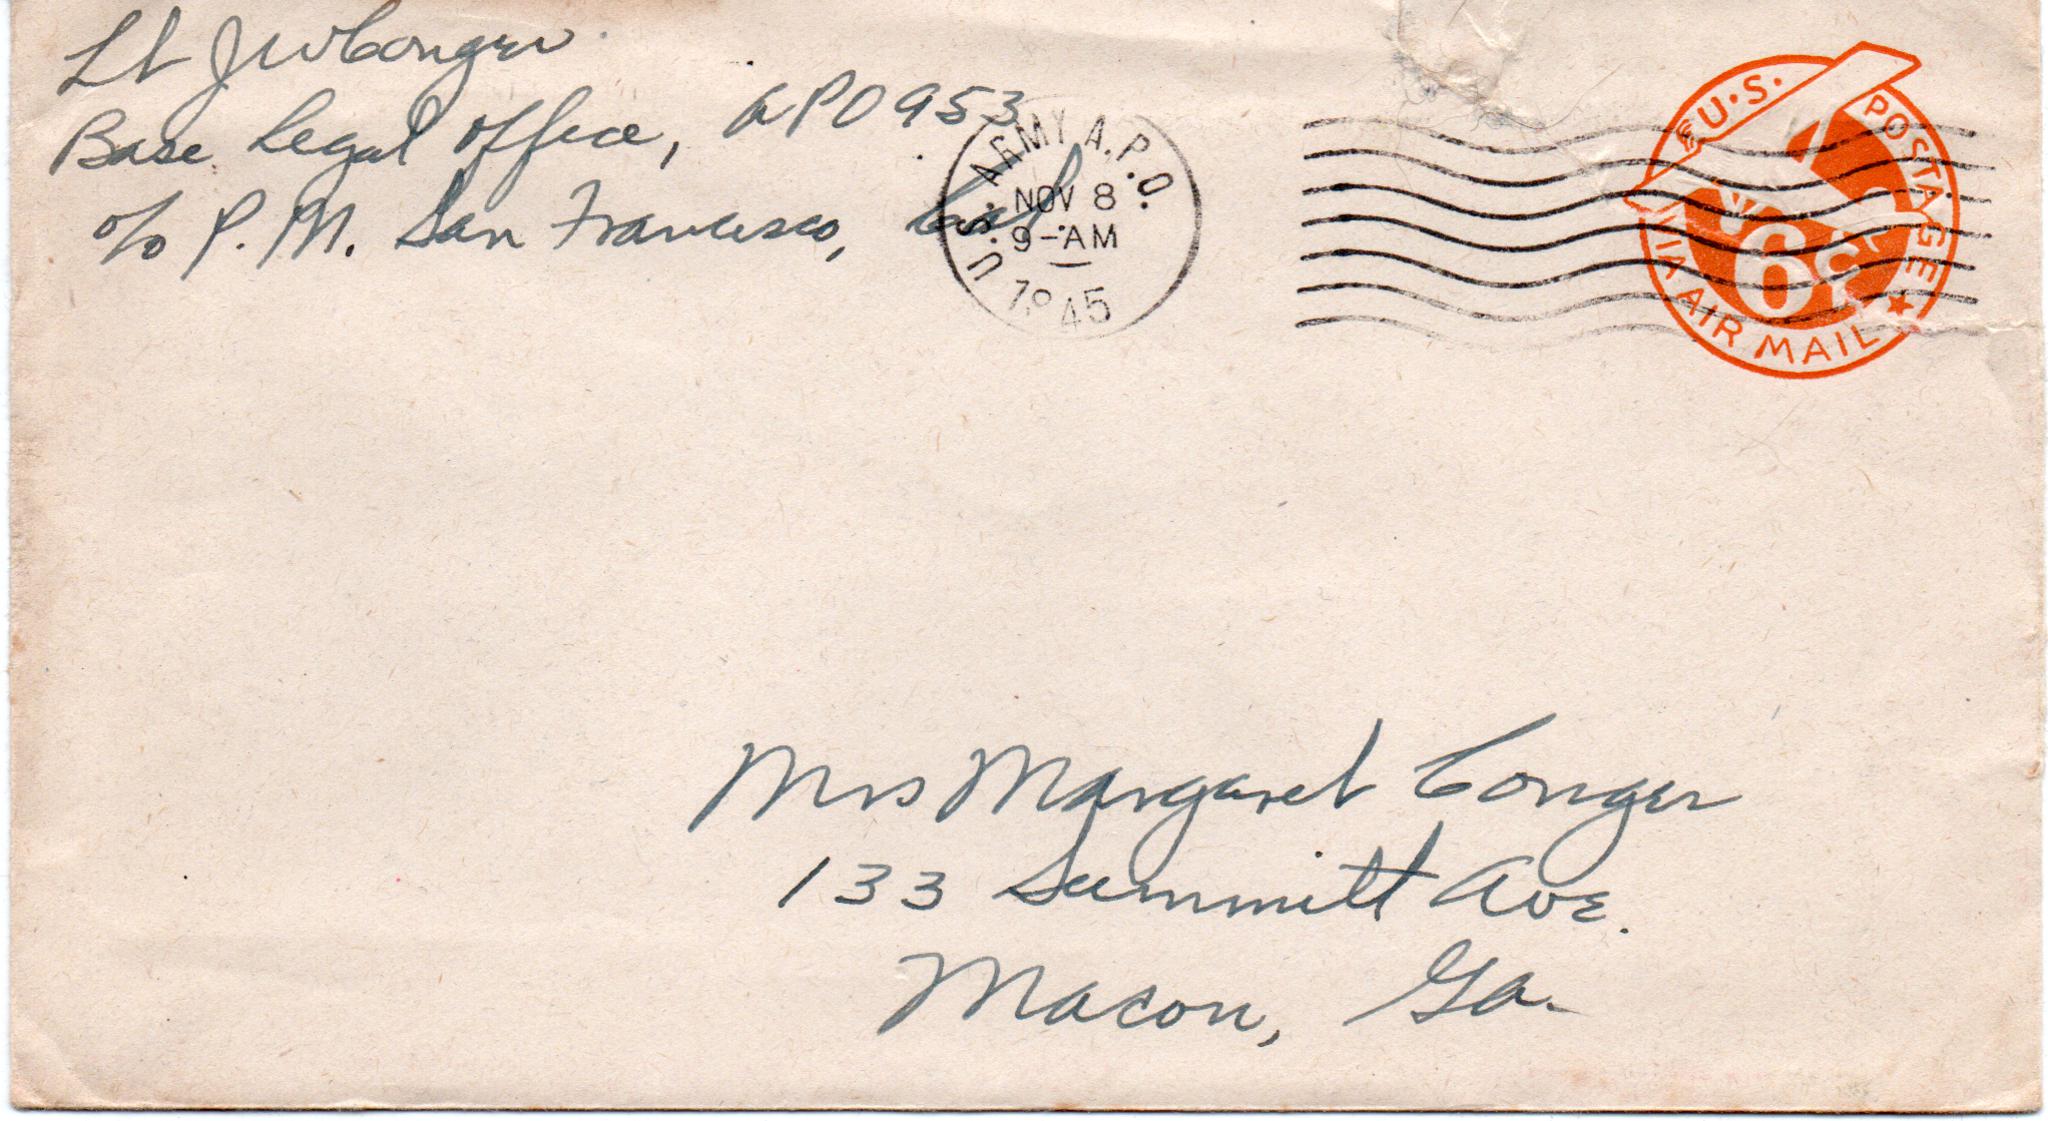 Lt J W Conger
Base Legal Office, APO 953
c/o P. M. San Francisco, Cal.
U.S. ARMY A.P.O.
NOV 8
9-AM
1945
U.S. POSTAGE
6¢
VIA AIR MAIL
Mrs Margaret Conger
133 Summitt Ave.
Macon, Ga.